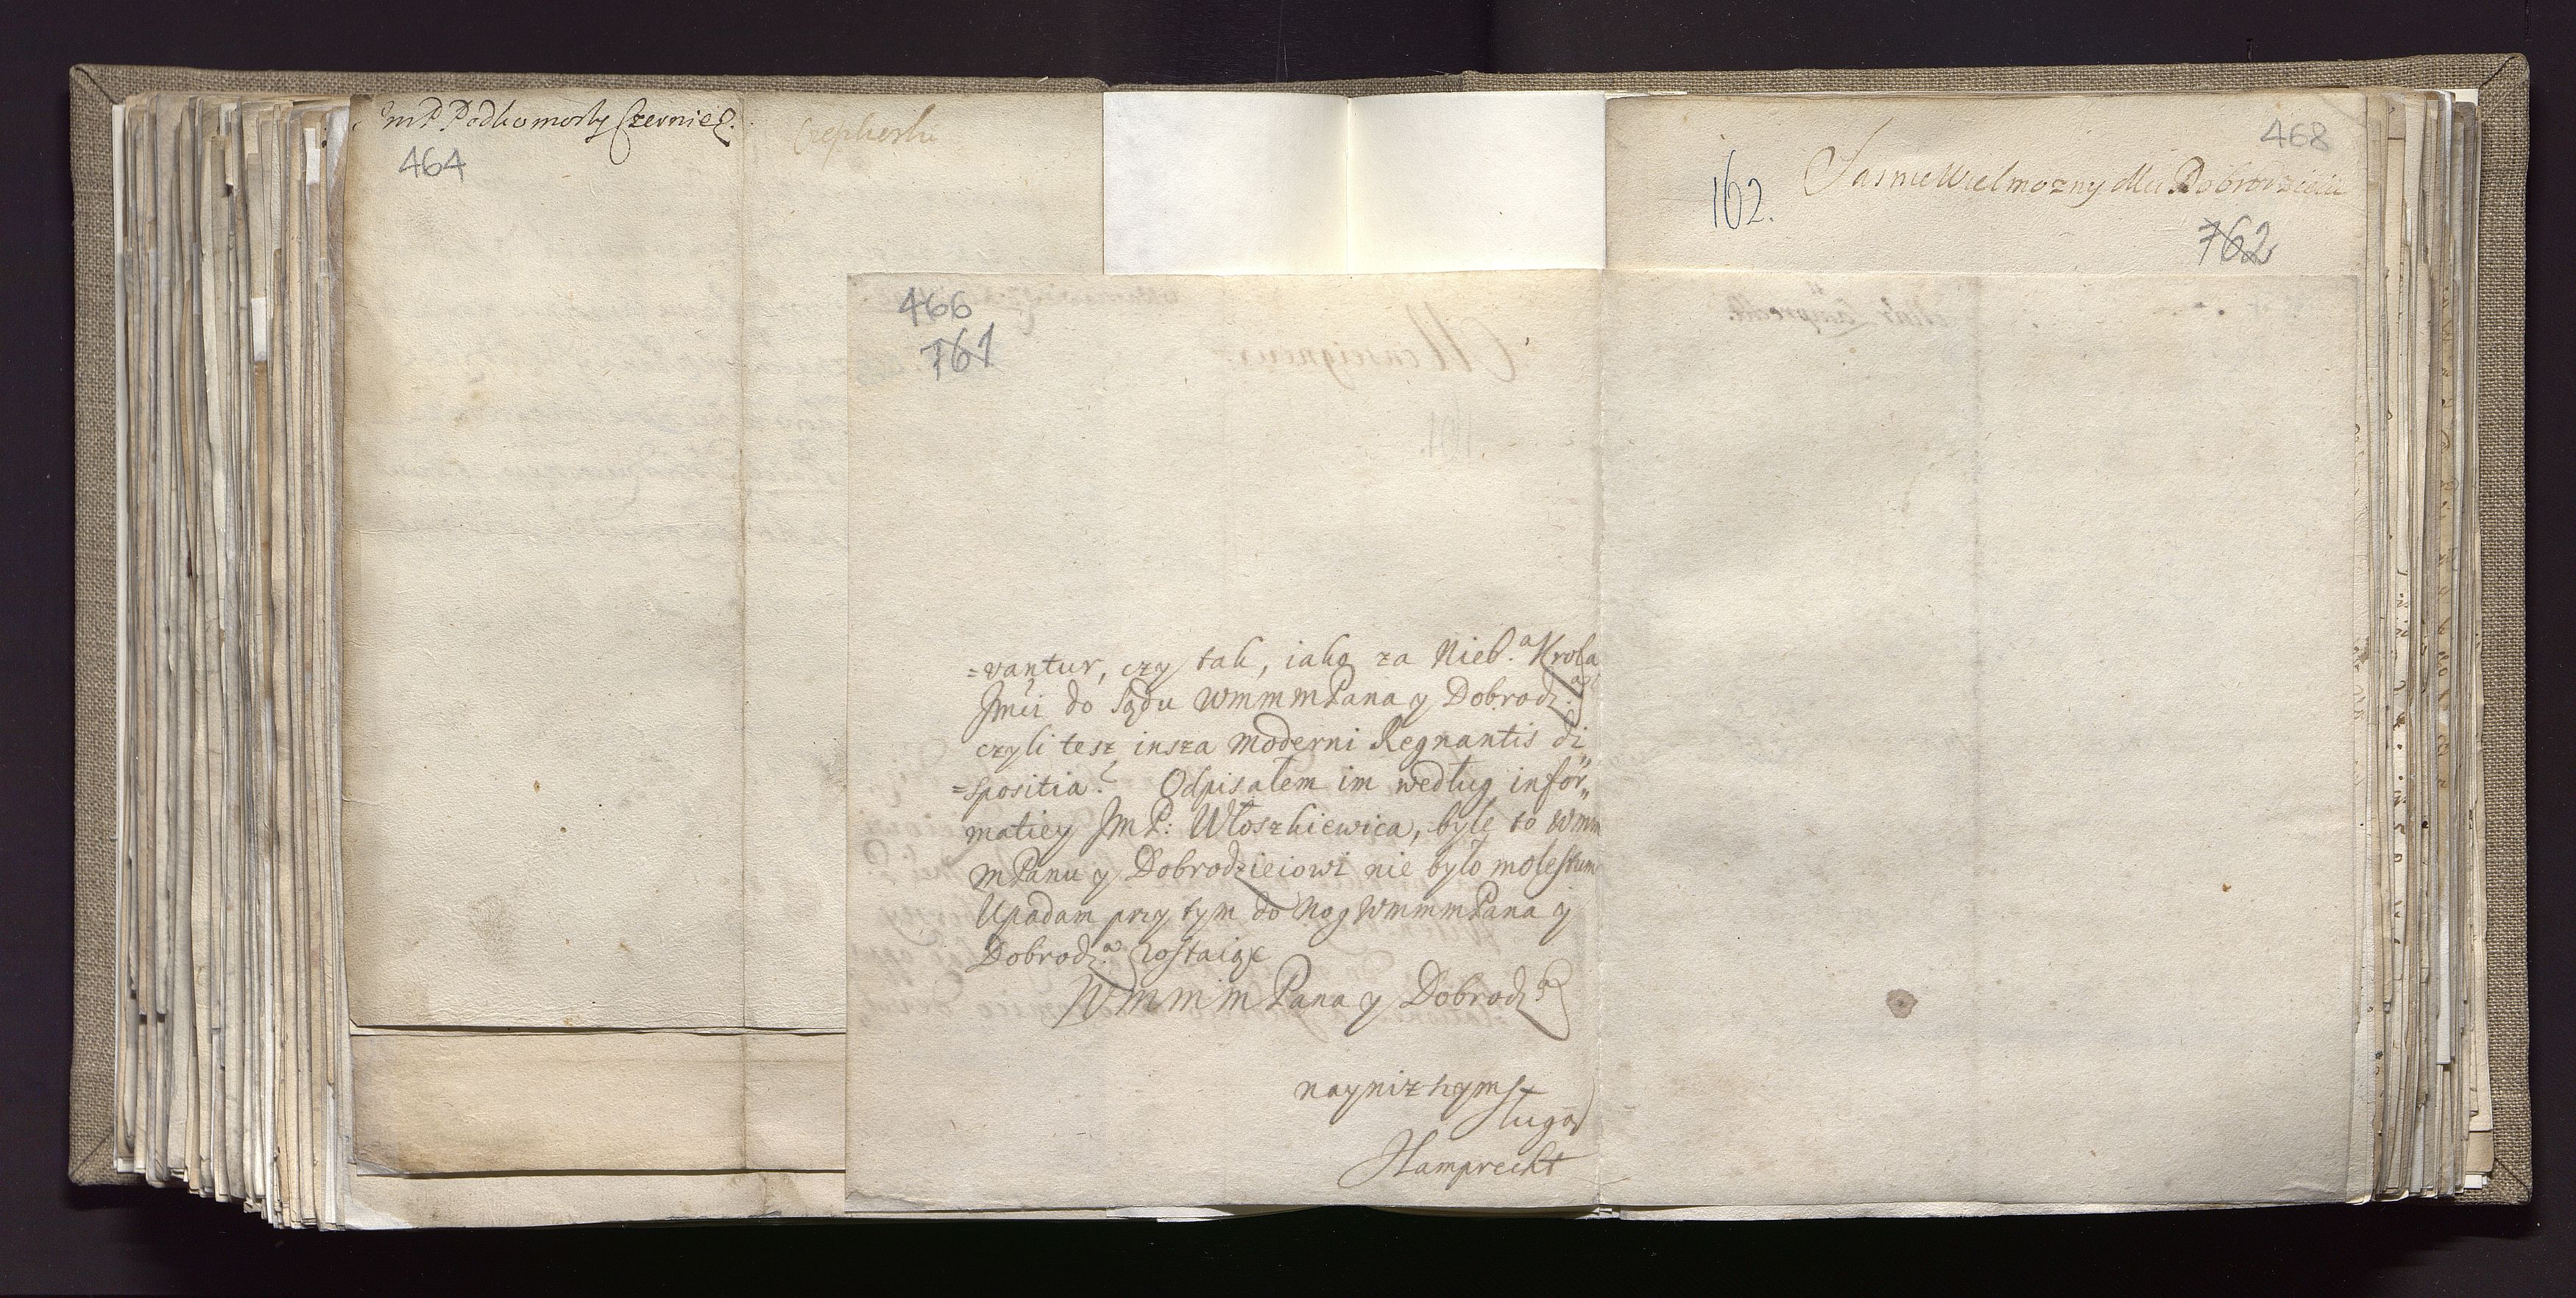 JmP Podkomorzy Czerniec.
464
468
162.
JasnieWielmozny Mci Dobrodzieiu
762
466
761
=vantur, czy tak, iako za Nieb.ᵃ Krola
Jmći do sądu WmmmPana y Dobrodz:ᵃ
czyli tesz insza moderni Regnantis di„
=spositia? Odpisałem im według infor„
matiey JmP: Włoszkiewica, byle to Wmm
mPanu y Dobrodzieiowi nie było molestum
Upadam przy tym do Nog WmmmPana y
Dobrodz:ᵃ zostaiąc
WmmmPana y Dobrodz:ᵃ
naynizszym
sługą
Hamprecht